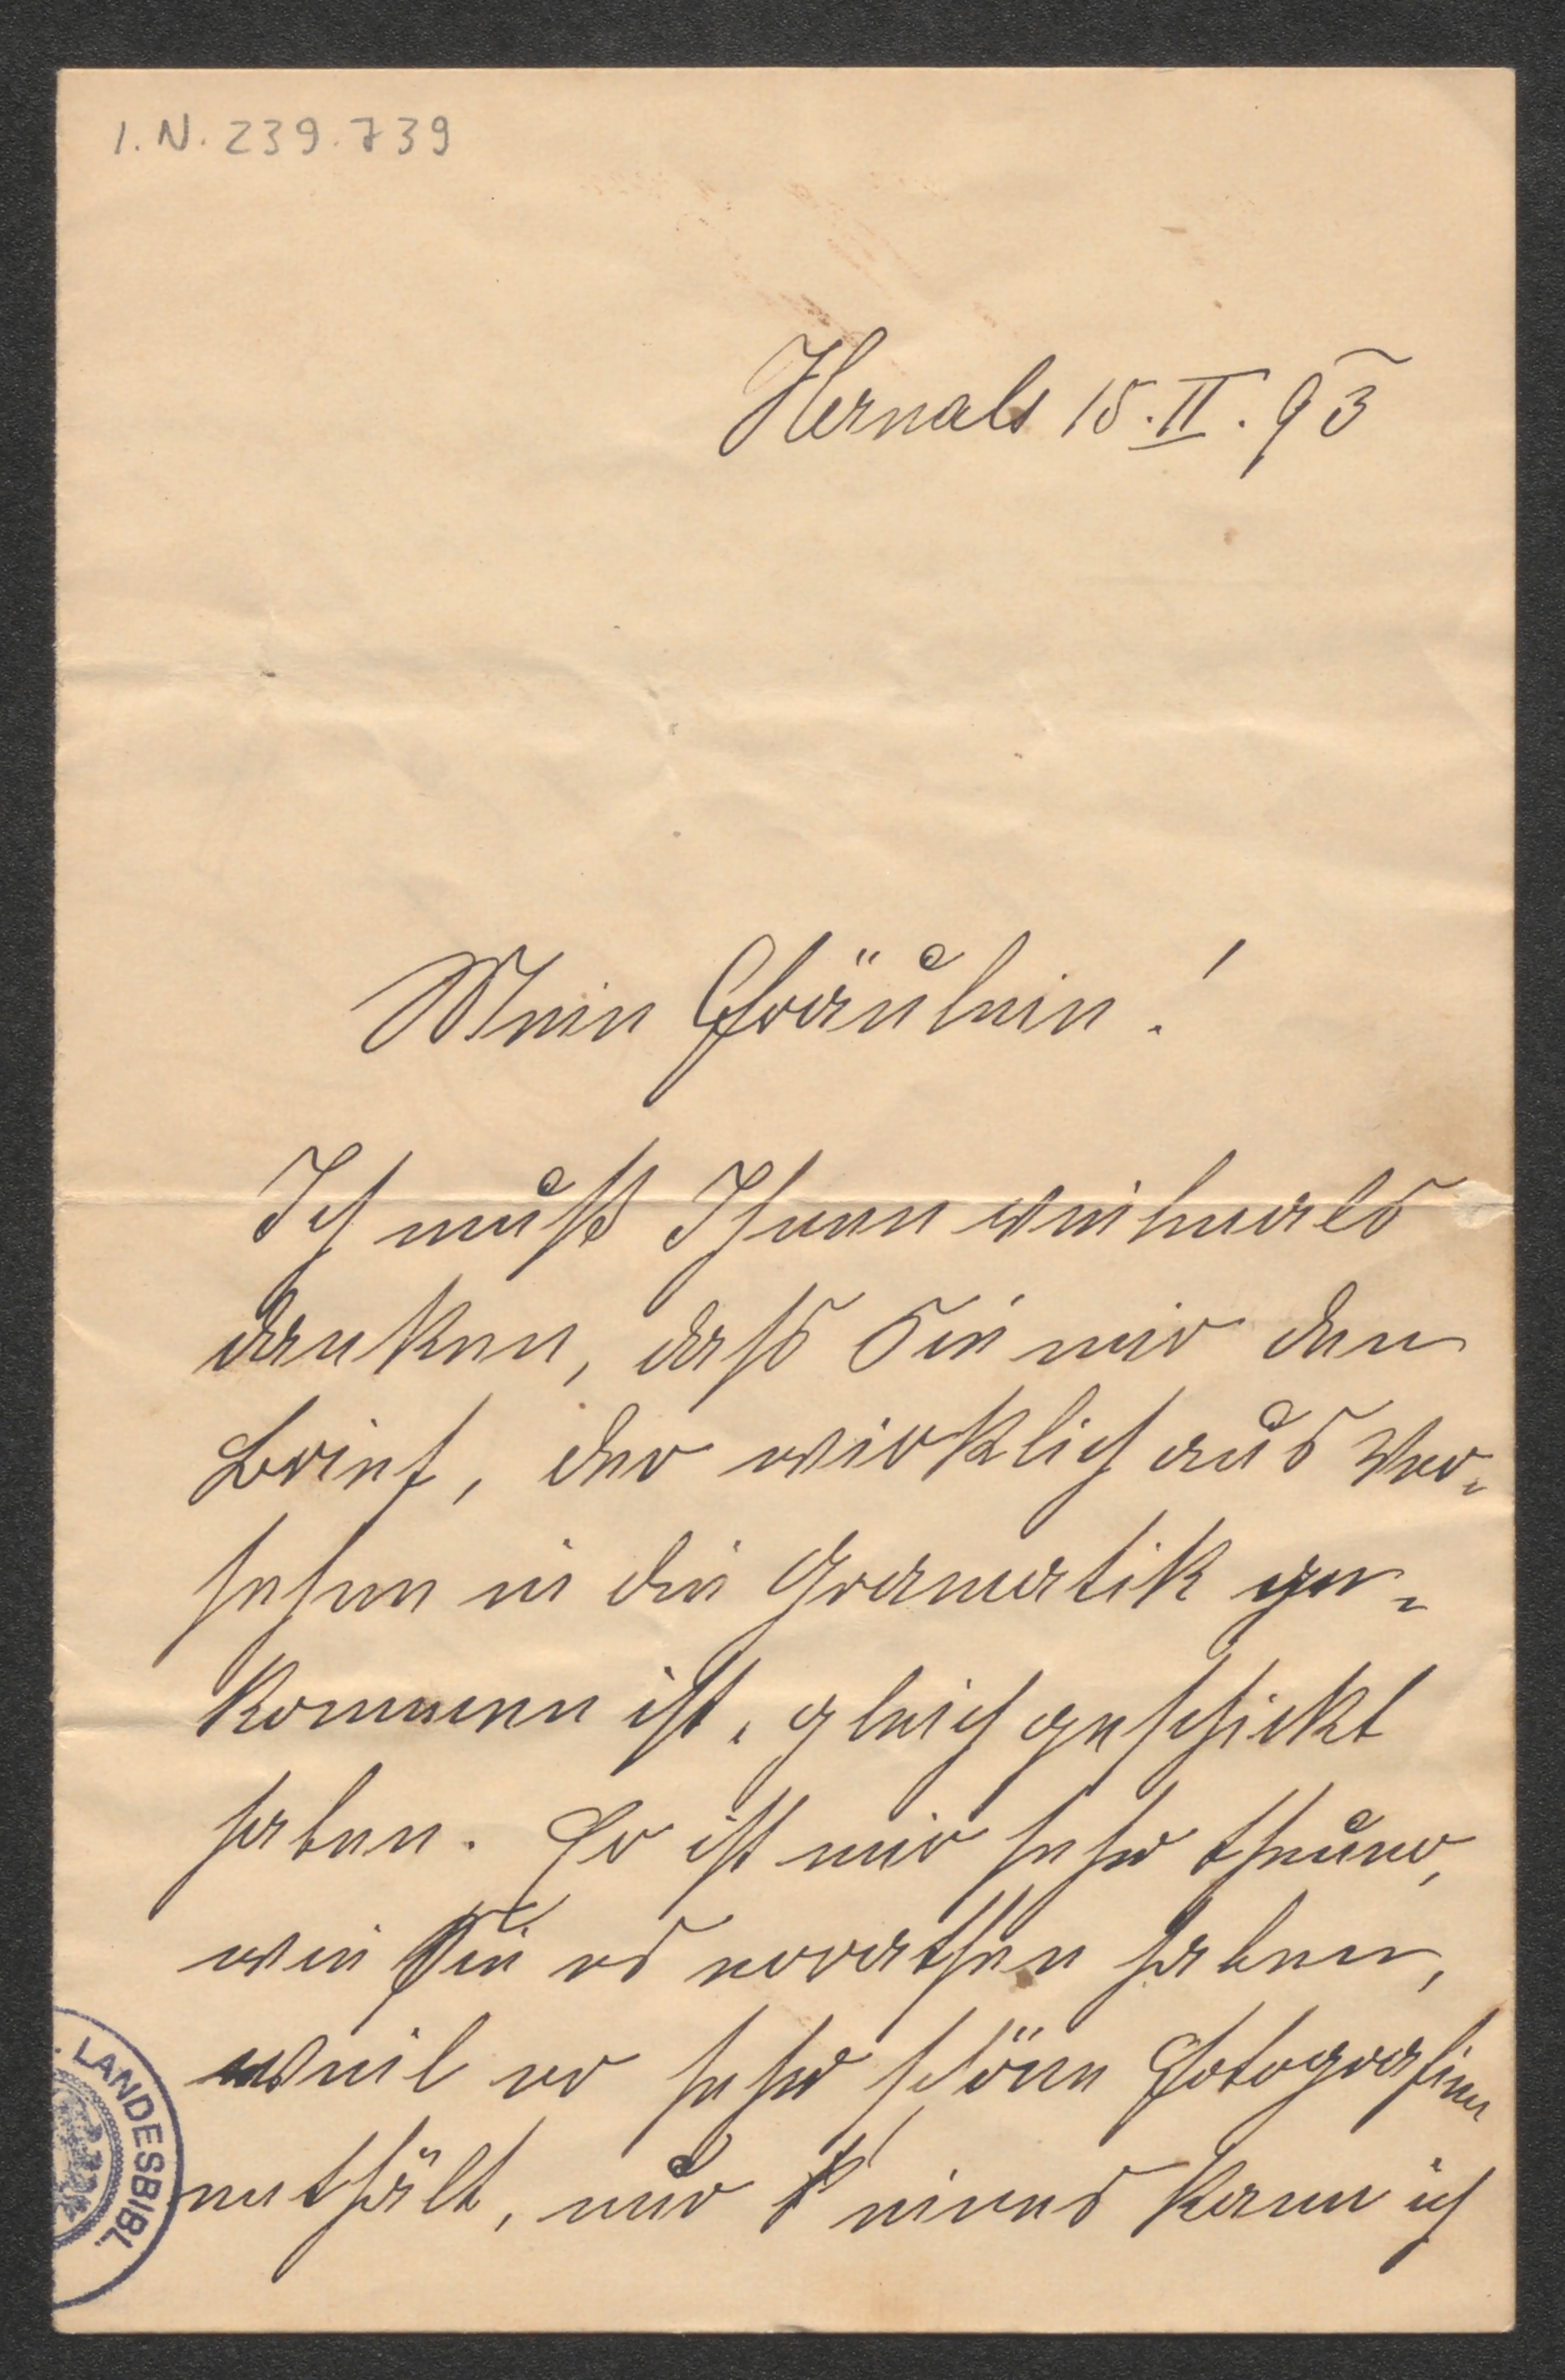 I.N. 239.739
Hernals 15.II.93
Mein Fräulein!
Ich muß Ihnen vielmals
danken, daß Sie mir den
Brief, der wirklich aus Ver=
sehen in die Gramatik ge=
kommen ist, gleich geschickt
haben. Er ist mir sehr theuer,
wie Sie es errathen haben,
weil er sehr schöne Fotografien
enthält, nur eines kann ich
LANDESBIBL